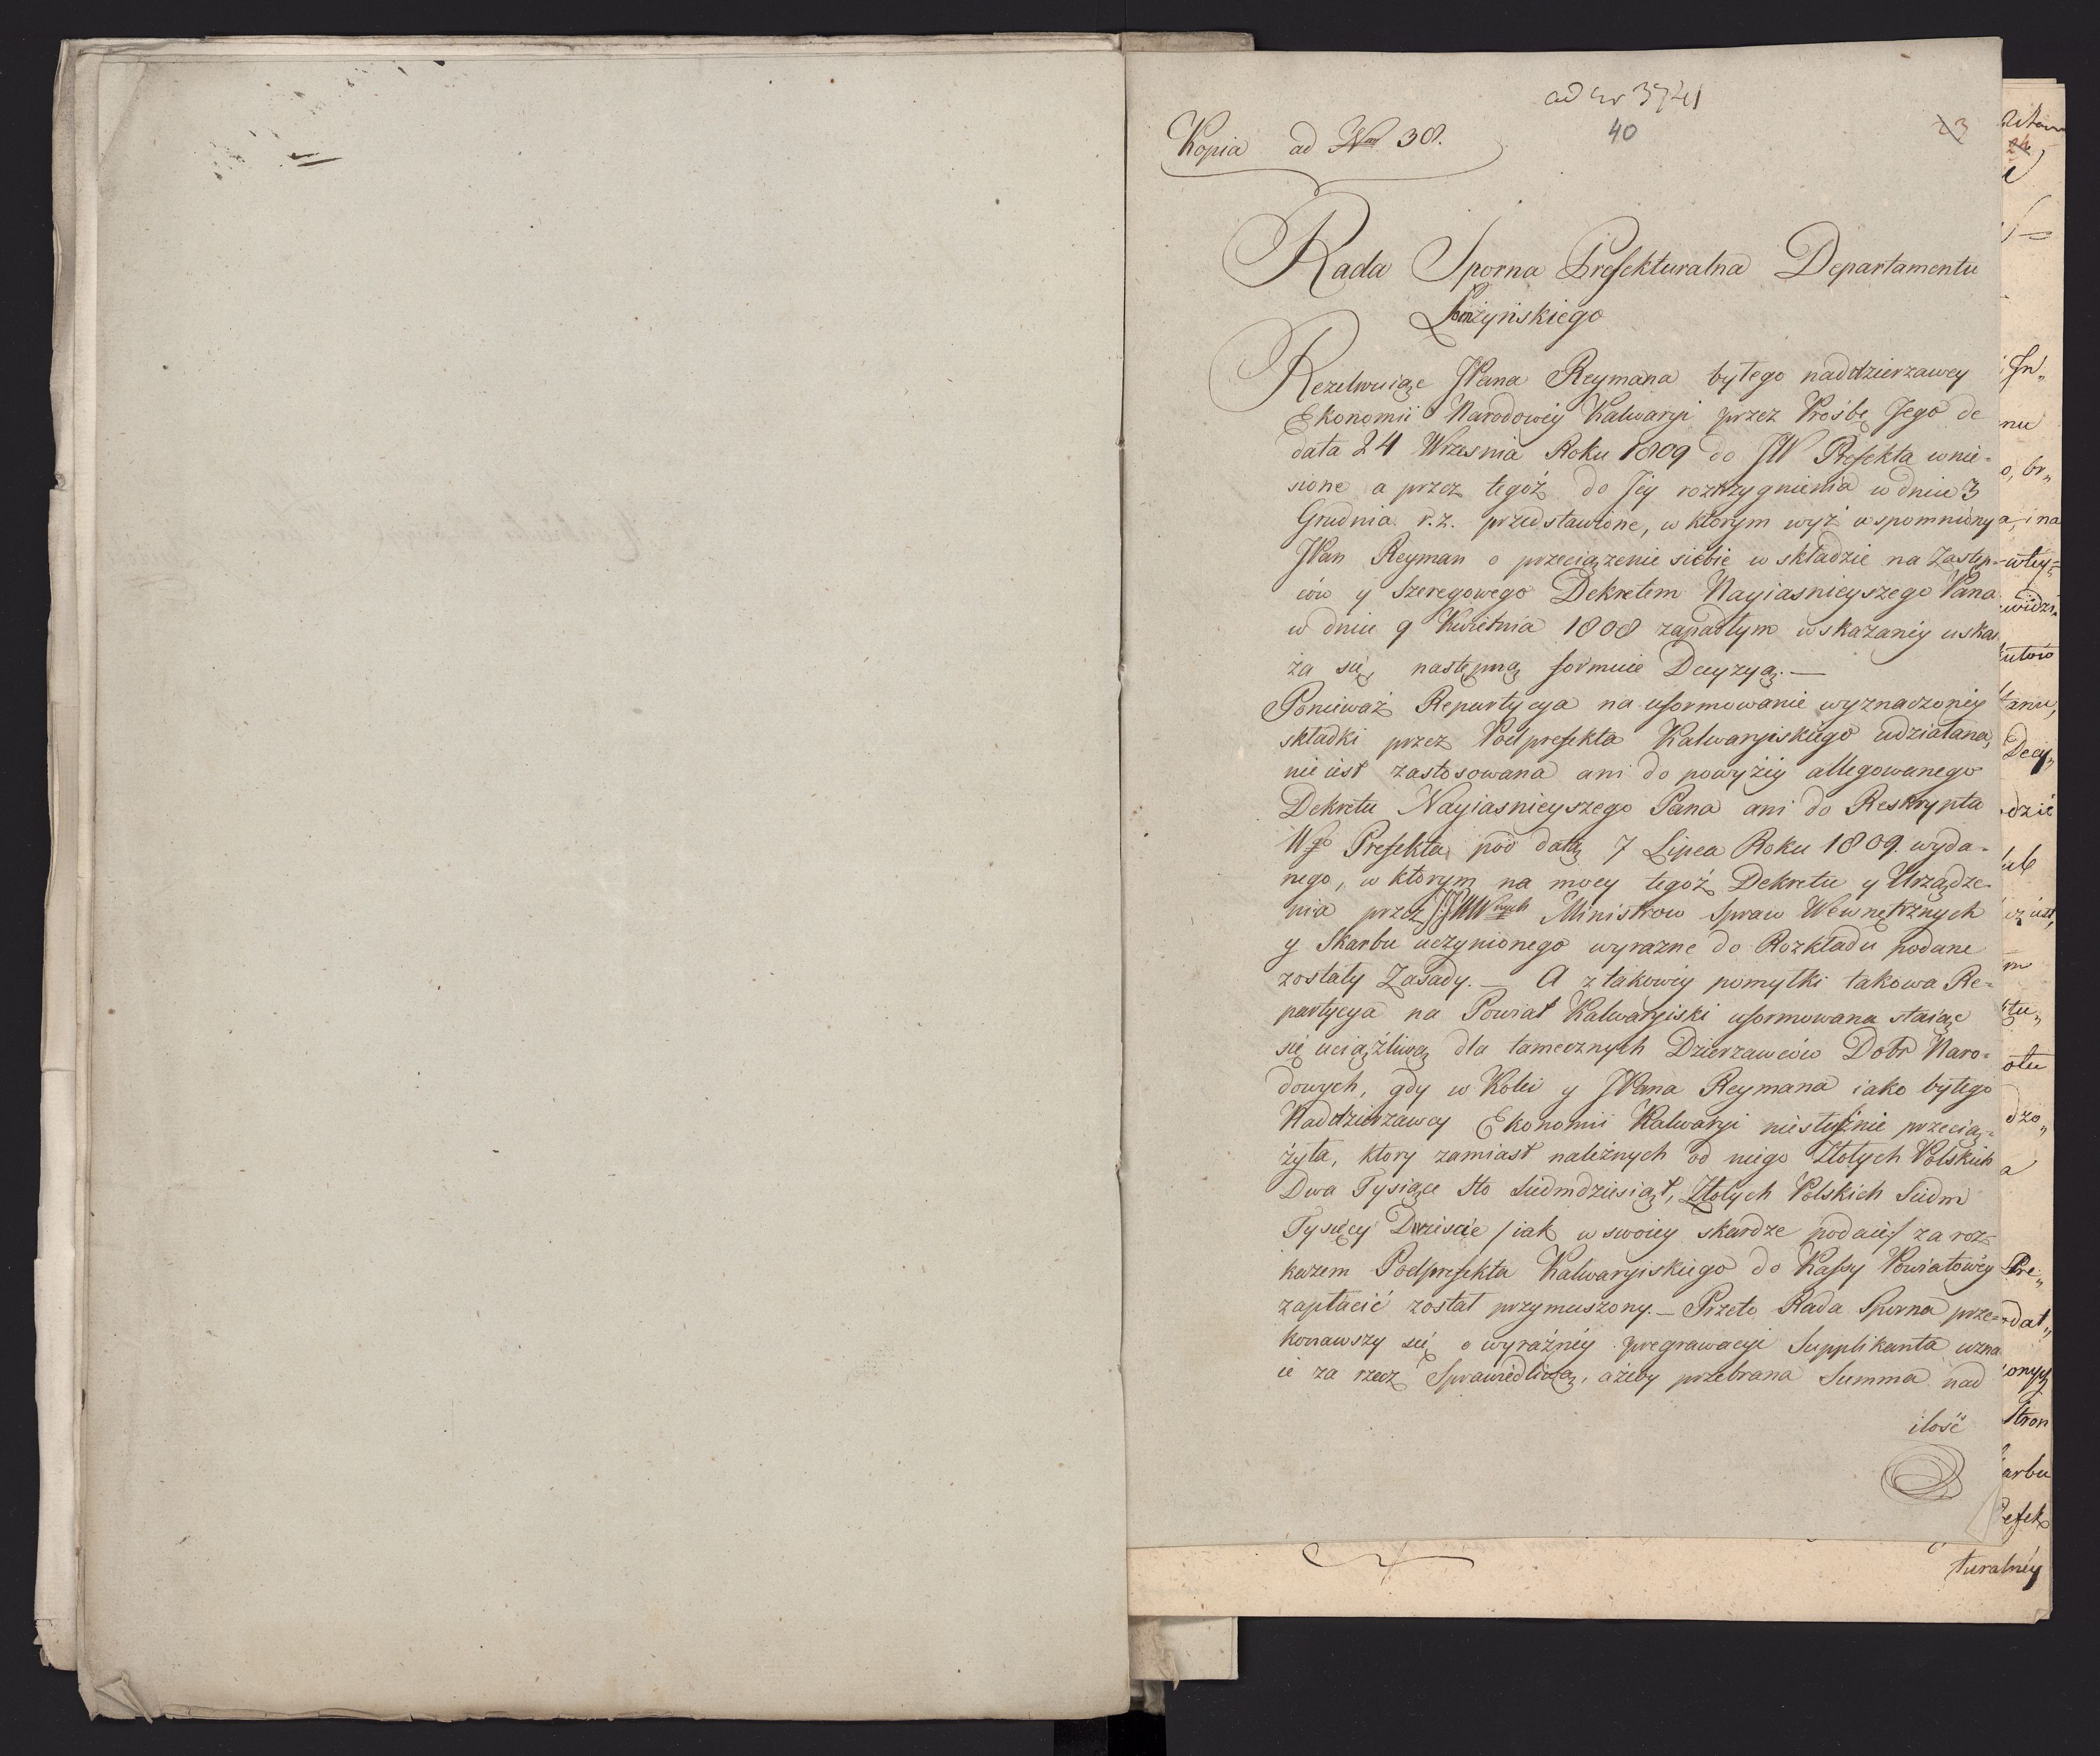 ad Nr 3741
40
23
Kopia ad Num 38.
Rada Sporna Prefekturalna Departamentu
Łomżyńskiego
Rezelwuiąc JPana Reymana byłego naddzierzawcy
Ekonomii Narodowéy Kalwaryi przez Prośbę Jego de
data 24 Wrzesnia Roku 1809 do JW Prefekta wnie-
sione a przez tegóż do Jéy rozstrzygnienia w dniu 3
Grudnia r.z. przedstawione, w ktorym wyż wspomniony
JPan Reyman o przeciązenie siebie w składzie na Zastęp-
ców y Szeregowego Dekretem Nayiasnieyszego Pana
w dniu 9 Kwietnia 1808 zapadłym wskazanéy uska-
ża się, następną formuie Decyzyą. —
Ponieważ Repartycya na uformowanie wyznaczonéy
składki przez Podprefekta Kalwaryiskiego udziałana,
nie iest zastosowana ani do powyżéy allegowanego
Dekretu Nayiasnieyszego Pana ani do Reskryptu
Wgo Prefekta, pod datą 7 Lipca Roku 1809. wyda-
nego, w ktorym na mocy tegóż Dekretu y Urządze-
nia przez JJWWnych Ministrow Spraw Wewnętrznych
y Skarbu uczynionego wyrazne do Rozkładu podane
zostały Zasady. — A z takowéy pomyłki takowa Re-
partycya na Powiat Kalwaryiski uformowana staiąc
się uciążliwą dla tamecznych Dzierzawców Dobr Naro-
dowych, gdy w Kolei y JPana Reymana iako byłego
Naddzierzawcy Ekonomii Kalwaryi niesłusznie przecią-
żyła, ktory zamiast należnych od niego Złotych Polskich
Dwa Tysiące Sto Siedmdziesiąt, Złotych Polskich Siedm
Tysięcy Dwieście /: iak w swoiey skardze podaie :/ za roz-
kazem Podprefekta Kalwaryiskiego do Kassy Powiatowéy
zapłacić został przymuszony. — Przeto Rada Sporna prze-
konawszy się o wyraźnéy pregrawacyi Supplikanta uzna
ie za rzecz Sprawiedliwą, ażeby przebrana Summa nad
ilość
turalnéy